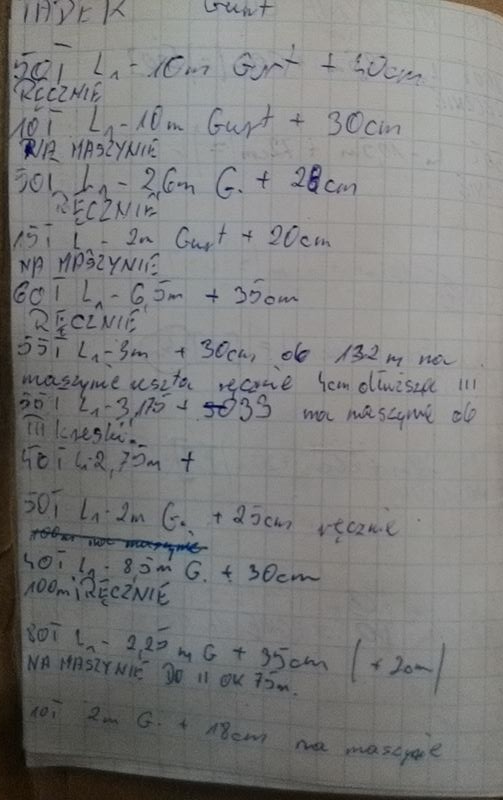 Gurt
50T L1 - 10m Gurt + 40cm
RĘCZNIE
10T L1 - 10m Gurt + 30cm
NA MASZYNIE
50T L1 - 2,6m G. + 28cm
RĘCZNIE
15T L - 2m Gurt + 20cm
NA MASZYNIE
60T L1 - 6,5m + 35cm
RĘCZNIE
55T L1 - 3m + 30cm ok 132m na
maszynie ręcznie 4cm dłuższe III
55T L1 - 3,175 + 035 na maszynie ok
III kreski.
40T L-2,75m +
50T L1 - 2m G. + 25cm ręcznie
100m na maszynie
40T L1 - 8,5m G. + 30cm
100m RĘCZNIE
80T L1 - 2,25m G + 35cm (+ 2cm)
NA MASZYNIE DO II OK 75m.
10T 2m G. + 18cm na maszynie